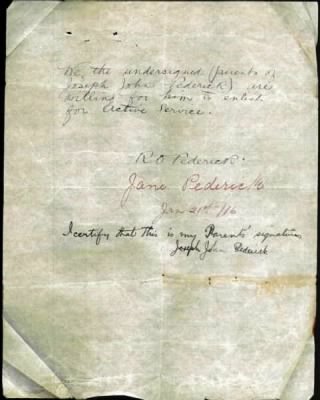 We, the undersigned (parents of
Joseph John Pederick) are
willing for him to enlist
for Active Service.
R. O. Pederick.
Jane Pederick
Jan 21st /16
I certify that this is my Parents' signature
Joseph John Pederick